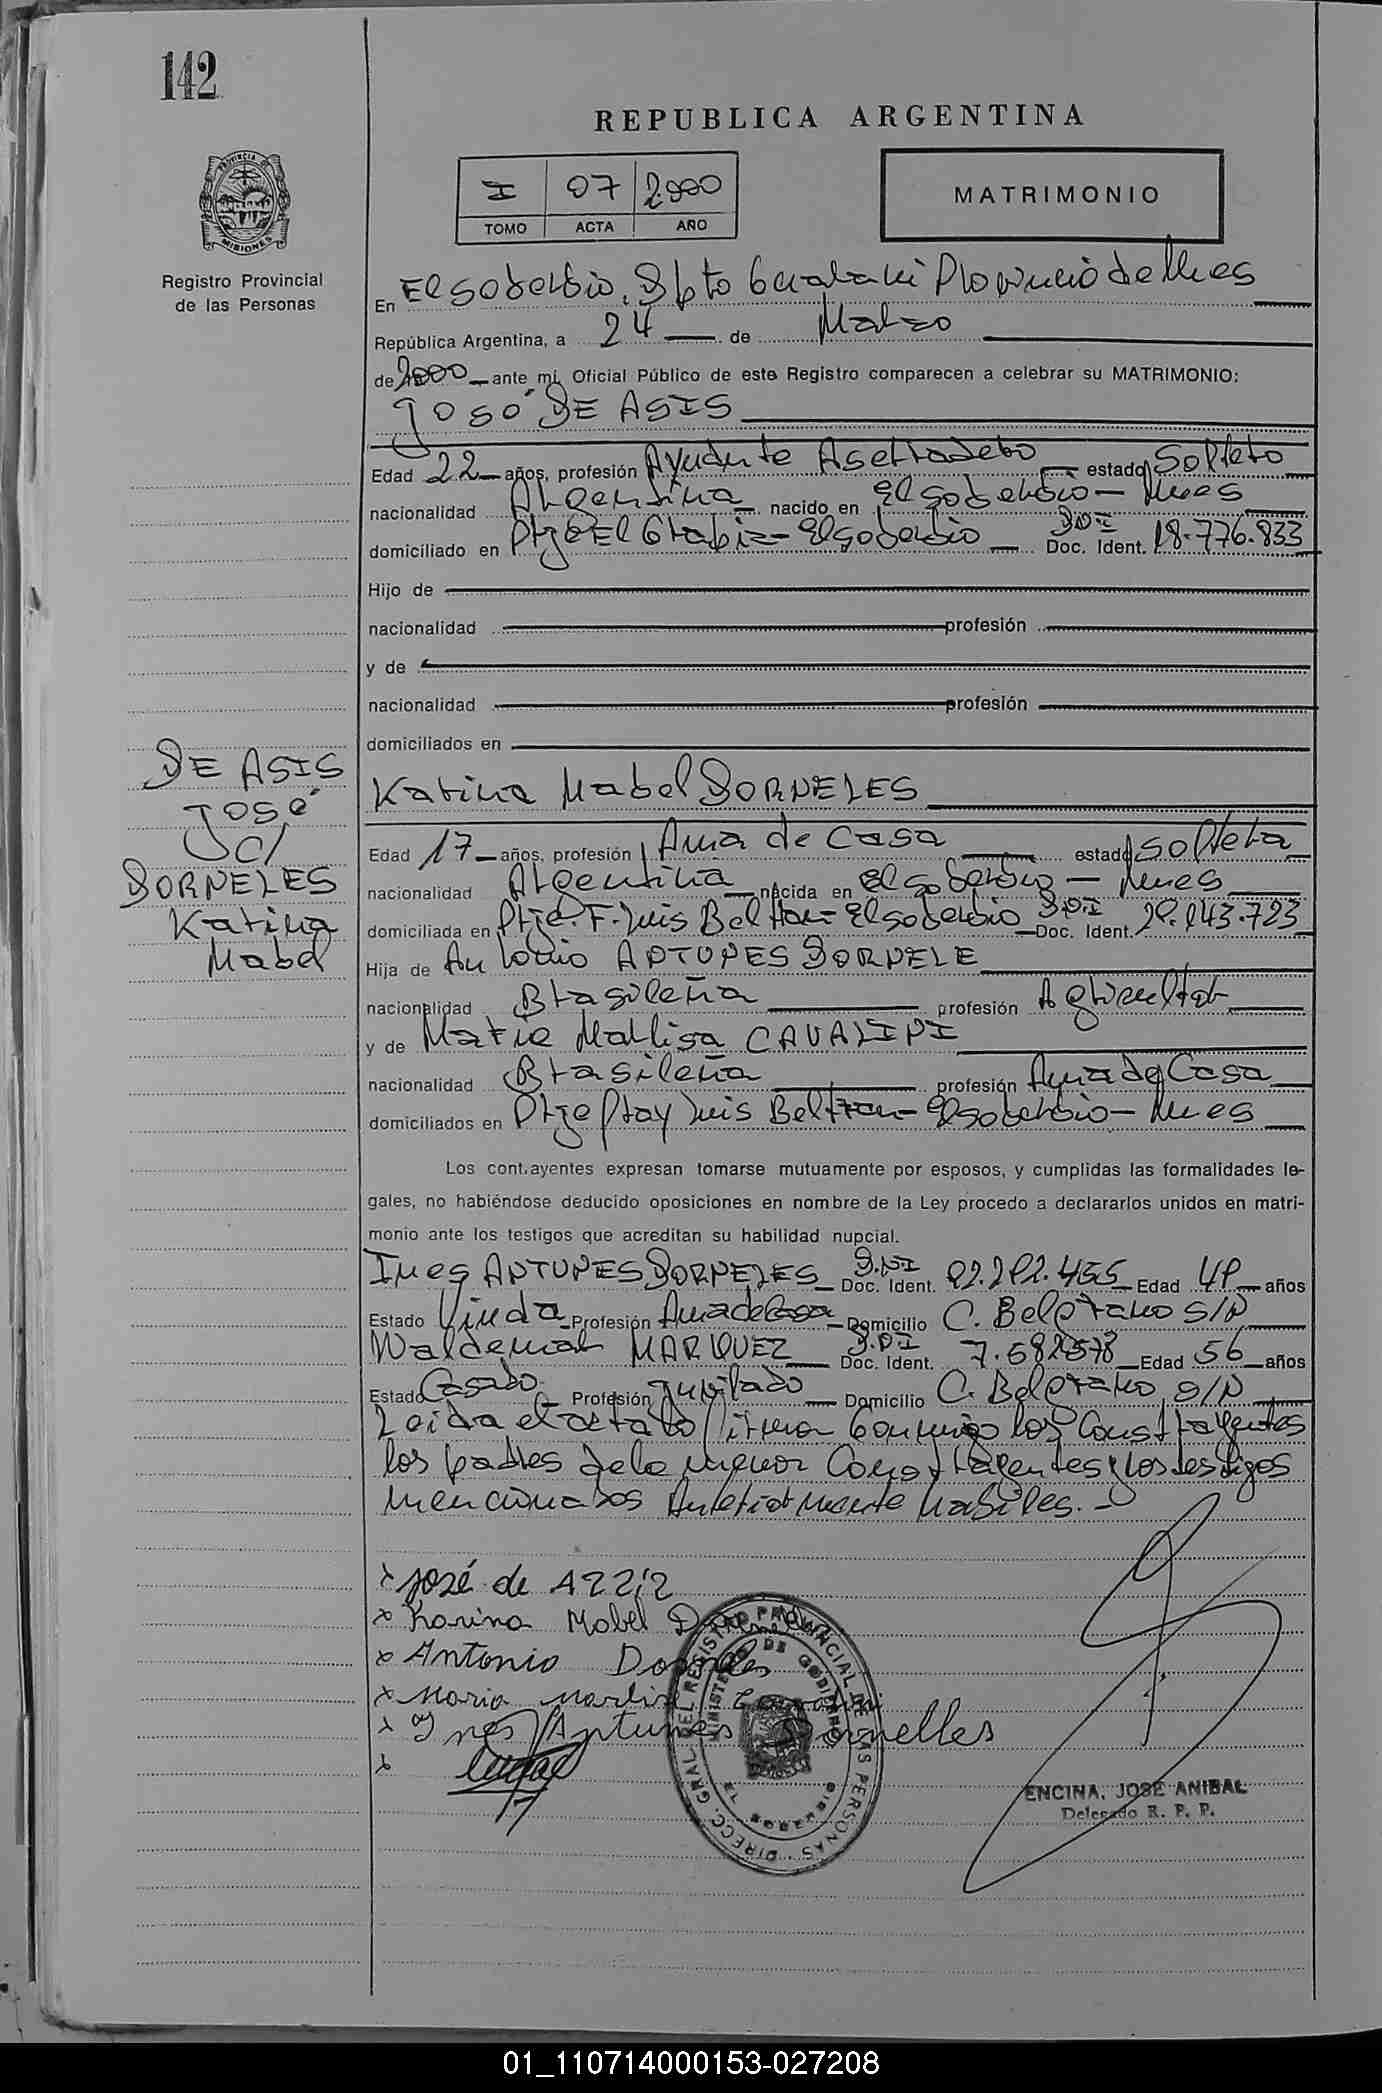 142
REPUBLICA ARGENTINA
I 07 2.000
TOMO ACTA AÑO
MATRIMONIO
PROVINCIA DE MISIONES
Registro Provincial
de las Personas
En El soberbio, Dpto Guarani Provincia de Mnes
República Argentina, a 24 de Marzo
de 2000 ante mí, Oficial Público de este Registro comparecen a celebrar su MATRIMONIO:
José DE ASIS
Edad 22 años, profesión Ayudante Aserradero estado Soltero
nacionalidad Argentina nacido en El soberbio - Mnes
domiciliado en Pje El - El soberbio D.N.I Doc. Ident. 18.776.833
Hijo de
nacionalidad profesión
y de
nacionalidad profesión
domiciliados en
DE ASIS
José
c/
DORNELES
Karina
Mabel
Karina Mabel DORNELES
Edad 17 años, profesión Ama de Casa estado soltera
nacionalidad Argentina nacida en El soberbio - Mnes
domiciliada en Pje. F. Luis Beltran - El soberbio D.N.I Doc. Ident. 143.723
Hija de Antonio ANTUNES DORNELE
nacionalidad Brasileña profesión Agricultor
y de Maria Marlisa CAVALINI
nacionalidad Brasileña profesión Ama de Casa
domiciliados en Pje fray Luis Beltran - El soberbio - Mnes
Los cont.ayentes expresan tomarse mutuamente por esposos, y cumplidas las formalidades le-
gales, no habiéndose deducido oposiciones en nombre de la Ley procedo a declararlos unidos en matri-
monio ante los testigos que acreditan su habilidad nupcial.
Ines ANTUNES DORNELES D.N.I Doc. Ident. 92.292.455 Edad 49 años
Estado Viuda Profesión Ama de Casa Domicilio C. Belgrano S/N
Waldemar MARQUEZ D.N.I Doc. Ident. 7. Edad 56 años
Estado Casado Profesión Jubilado Domicilio C. Belgrano S/N
Leida el acta la firman conmigo los Constrayentes
los padres de la menor Constrayentes y los testigos
mencionados Anteriormente habiles.-
x José de Azziz
x Karina Mabel
x Antonio Dorneles
x Maria Marlisa
x Ines Antunes Dornelles
x
DIRECC. GRAL. DEL REGISTRO PROVINCIAL DE LAS PERSONAS
MINISTERIO DE GOBIERNO
MISIONES
ENCINA, JOSE ANIBAL
Delegado R. P. P.
01_110714000153-027208